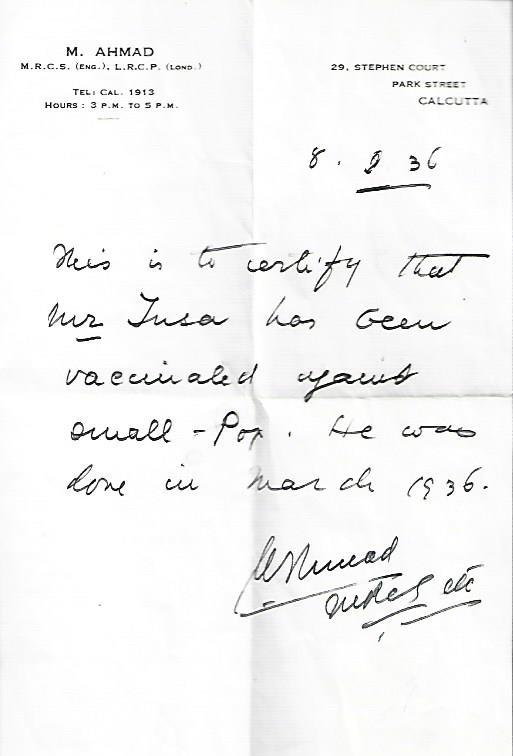 M. AHMAD
M.R.C.S. (ENG.), L.R.C.P. (LOND.)
TEL: CAL. 1913
HOURS: 3 P.M. TO 5 P.M.
29, STEPHEN COURT
PARK STREET
CALCUTTA
8. 36
This is to certify that
Mr Tusa has been
vaccinated against
small-Pox. He was
done in March 1936.
MAhmad
MRCS etc